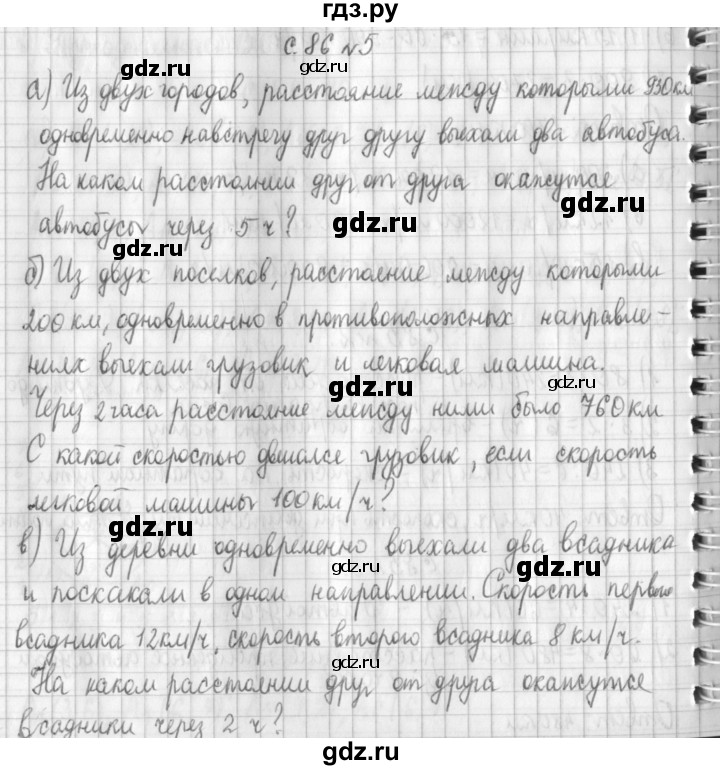 гдз.ру
с. 86 №5
а) Из двух городов, расстояние между которыми 930 км
одновременно навстречу друг другу выехали два автобуса.
На каком расстоянии друг от друга окажутся
автобусы через 5 ч?
б) Из двух поселков, расстояние между которыми
200 км, одновременно в противоположных направле-
ниях выехали грузовик и легковая машина.
Через 2 часа расстояние между ними было 760 км
С какой скоростью двигался грузовик, если скорость
легковой машины 100 км/ч?
в) Из деревни одновременно выехали два всадника
и поскакали в одном направлении. Скорость первого
всадника 12 км/ч, скорость второго всадника 8 км/ч.
На каком расстоянии друг от друга окажутся
всадники через 2 ч?
gdz.ru
gdz.ru
gdz.ru
gdz.ru
gdz.ru
gdz.ru
gdz.ru
gdz.ru
gdz.ru
gdz.ru
gdz.ru
gdz.ru
gdz.ru